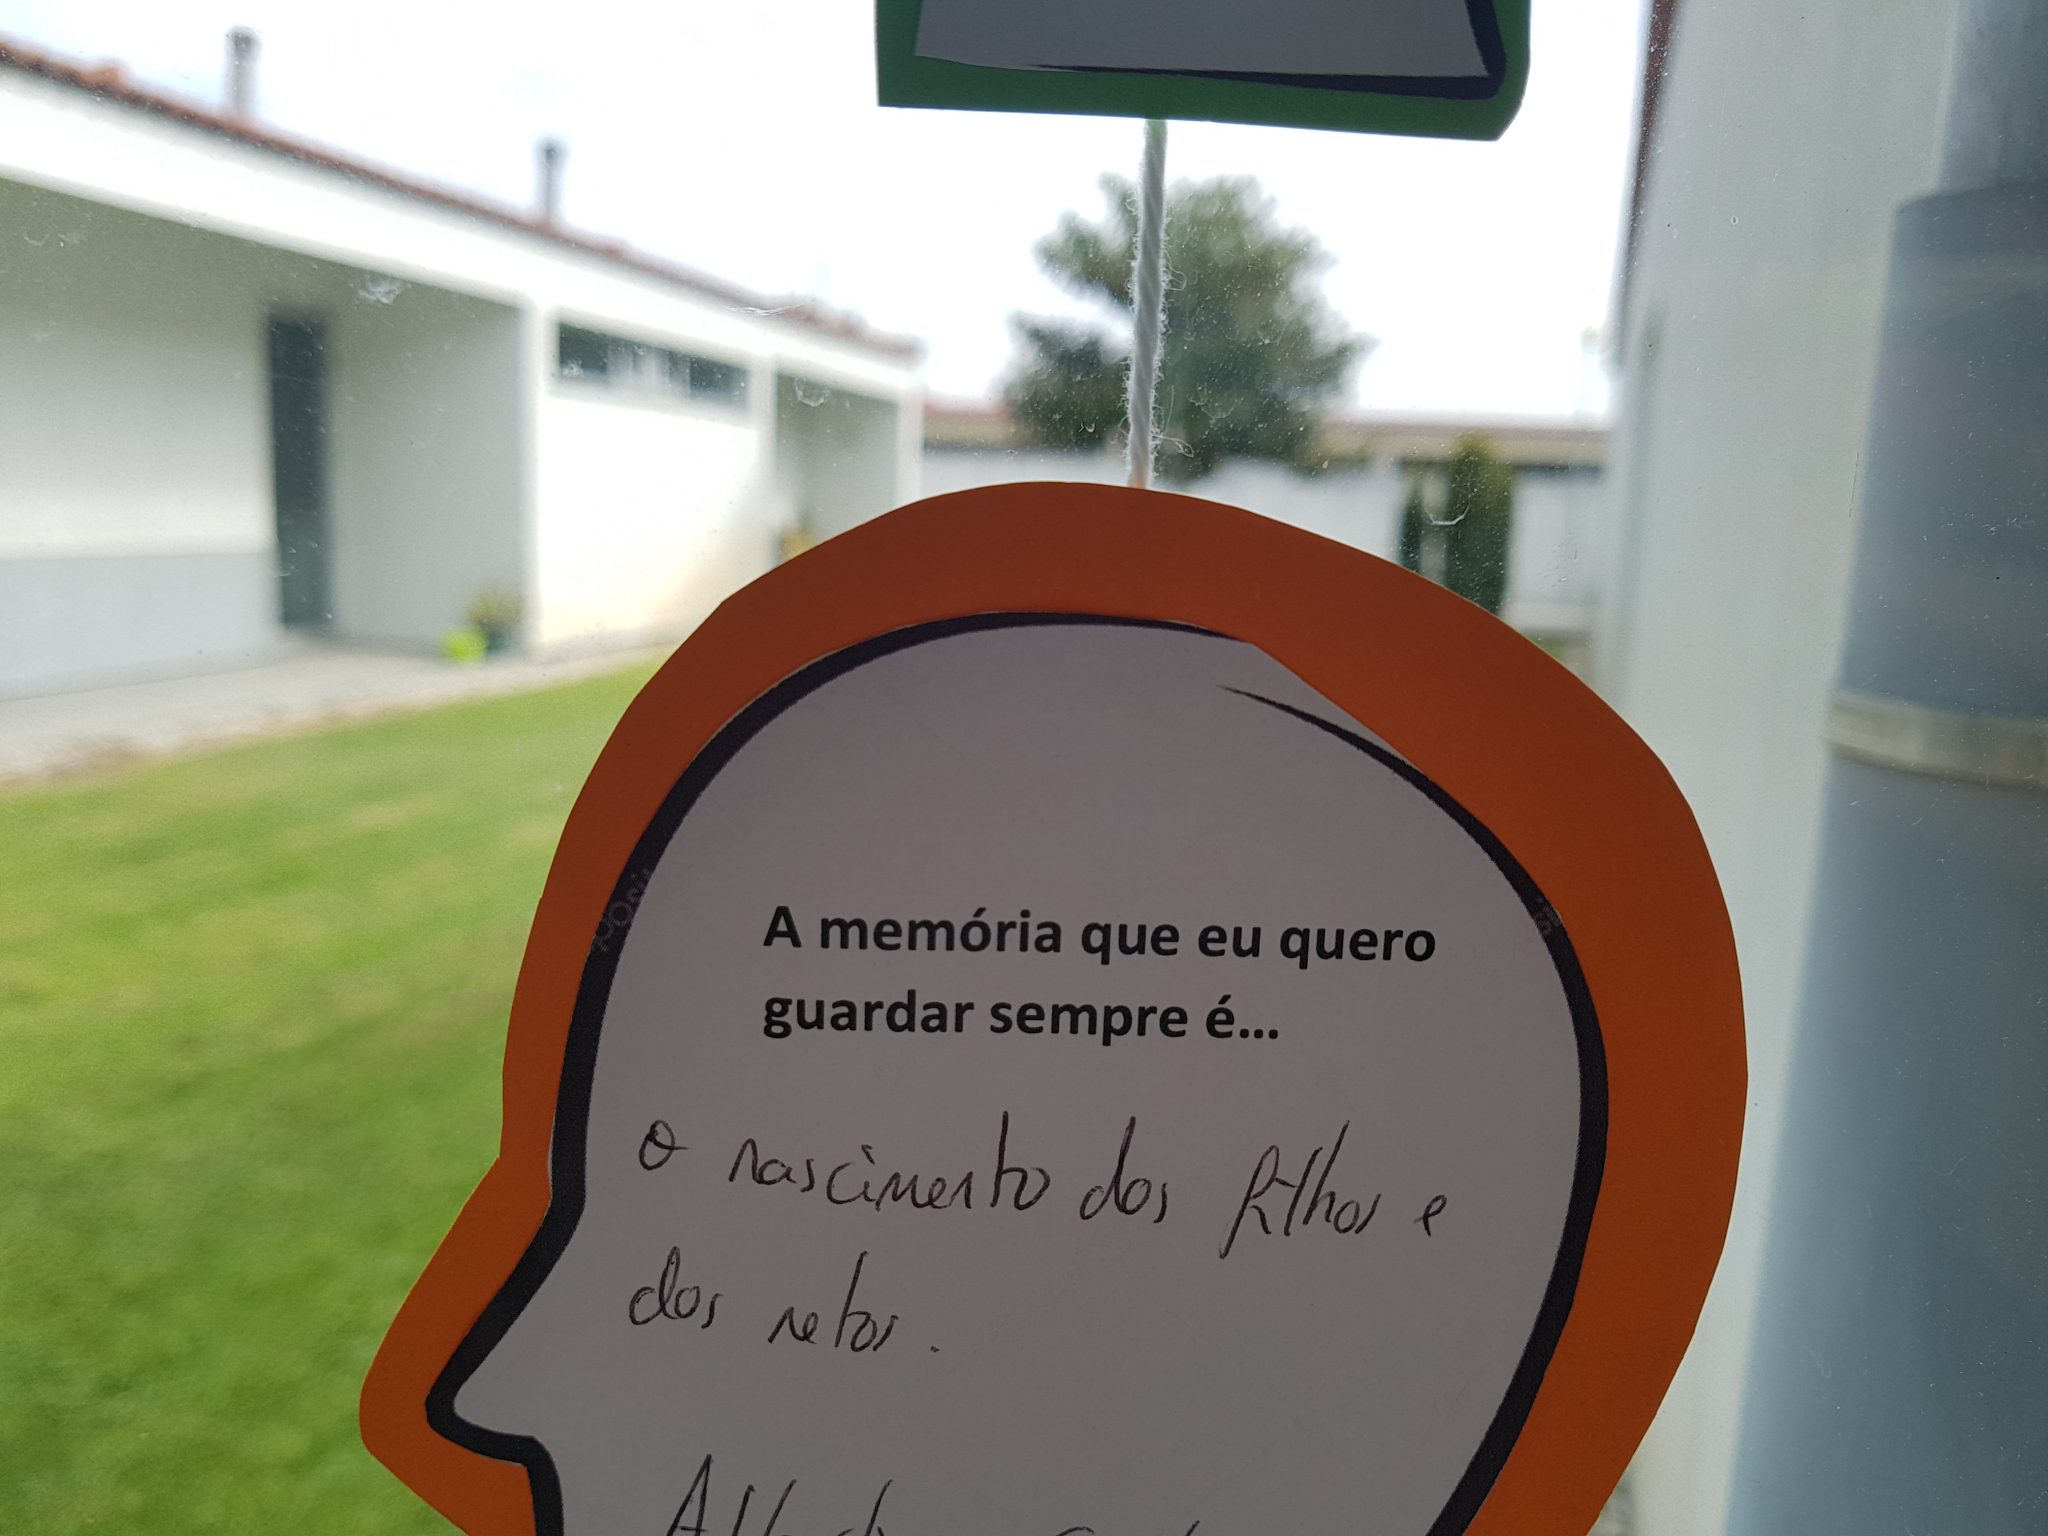 A memória que eu quero
guardar sempre é...
o nascimento dos filhos e
dos netos.